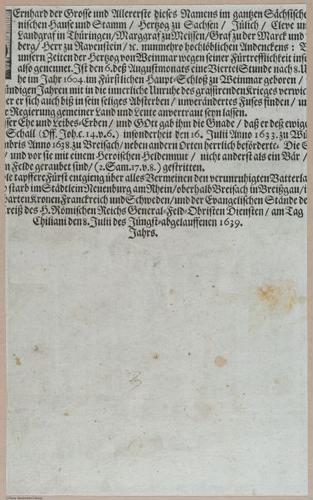 Ernhard der Grosse und Allererste dieses Namens im gantzen Sächsische
nischen Hause und Stamm / Hertzog zu Sachsen / Jülich / Cleve un
Landgraf in Thüringen / Marggraf zu Meissen / Graf zu der Marck und
berg / Herr zu Ravenstein / ꝛc. nunmehro hochlöblichen Andenckens : D
unsern Zeiten der Hertzog von Weinmar wegen seiner Fürtrefflichkeit ins
also genennet. Ist den 6. deß Augustmonats eine Viertel Stunde nach 8. U
he im Jahr 1604. im Fürstlichen Haupt-Schloß zu Weinmar geboren /
ündigen Jahren mit in die innerliche Unruhe des graffirenden Krieges verwic
er er sich auch biß in sein seliges Absterben / unverändertes Fuses finden / un
e Regierung gemeiner Land und Leute anvertraut seyn lassen.
sser Ehe und Leibes-Erben / und GOtt gab ihn die Gnade / daß er deß ewige
Schall (Off. Joh. c. 14. v. 6.) insonderheit den 16. Julii Anno 1633. zu Wü
mbris Anno 1638. zu Breisach / neben andern Orten herrlich beförderte. Die E
/ und vor sie mit einem Heroischen Heldenmut / nicht anderst als ein Bär /
n Felde geraubet sind / (2. Sam. 17. v. 8.) gestritten.
le tapffere Fürst entgieng über alles Vermeinen den verunruhigten Vatterla
o starb im Städtlein Neuenburg am Rhein / oberhalb Breisach im Breißgau / i
barten Kronen Franckreich und Schweden / und der Evangelischen Stände de
reiß des H. Römischen Reichs General-Feld-Obristen Diensten / am Tag
Chiliani den 8. Julii des Jüngst-abgelauffenen 1639.
Jahrs.